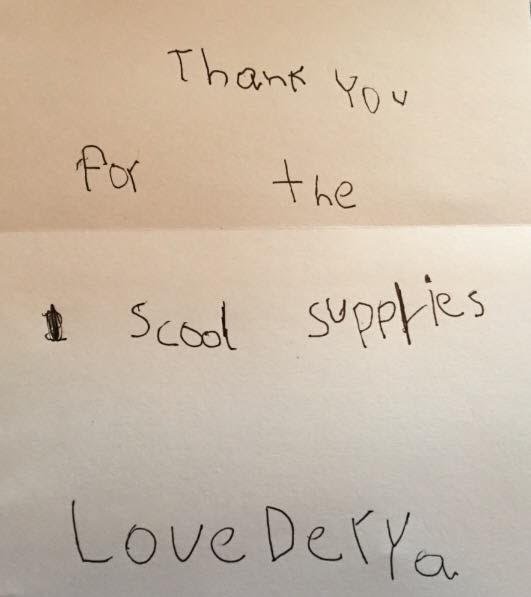 Thank You
for the
scool supplies
Love Derya